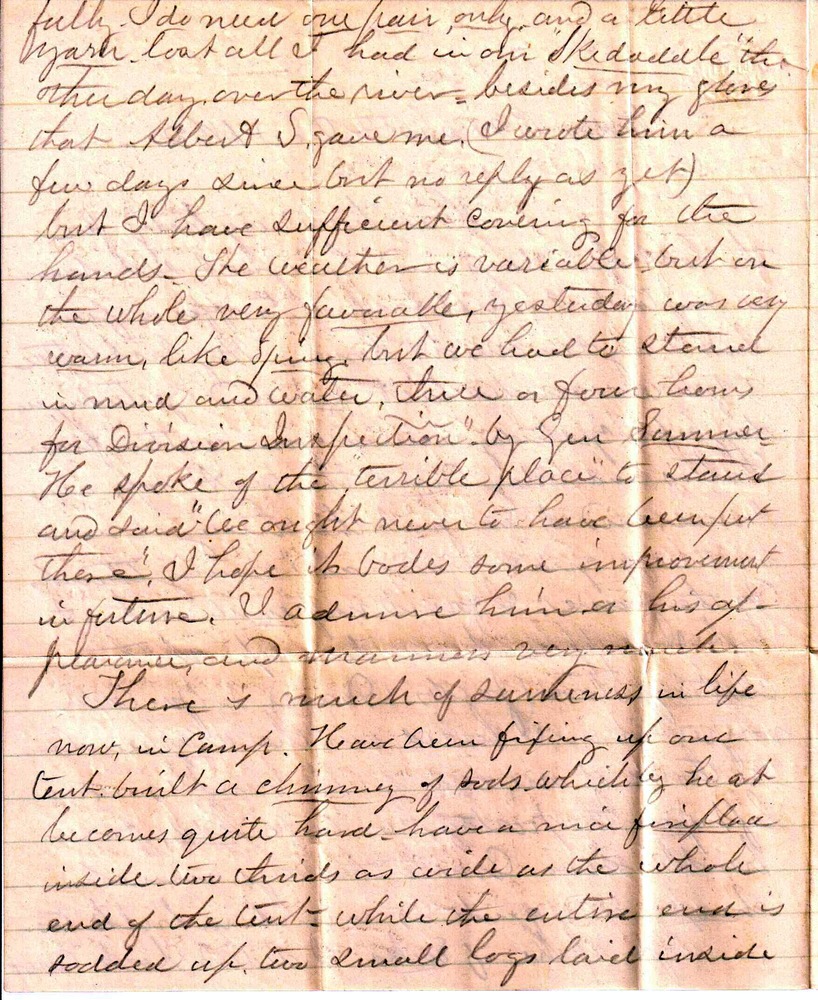 fully. I do need one pair, only, and a little
yarn. lost all I had in our "Skedaddle" the
other day, over the river - besides my gloves
that Albert S. gave me. (I wrote him a
few days since but no reply as yet)
but I have sufficient covering for the
hands - The weather is variable but on
the whole very favorable, yesterday was very
warm, like Spring, but we had to stand
in mud and water, three or four hours
for Division Inspection" by Gen Sumner
He spoke of the "terrible place" to stand
and said "we ought never to have been put
there". I hope it bodes some improvement
in future. I admire him & his ap-
pearance, and manners very much.
There is much of sameness in life
now, in Camp. Have been fixing up our
tent. built a chimney of sods which by heat
becomes quite hard - have a nice fireplace
inside two thirds as wide as the whole
end of the tent - while the entire end is
sodded up. two small logs laid inside